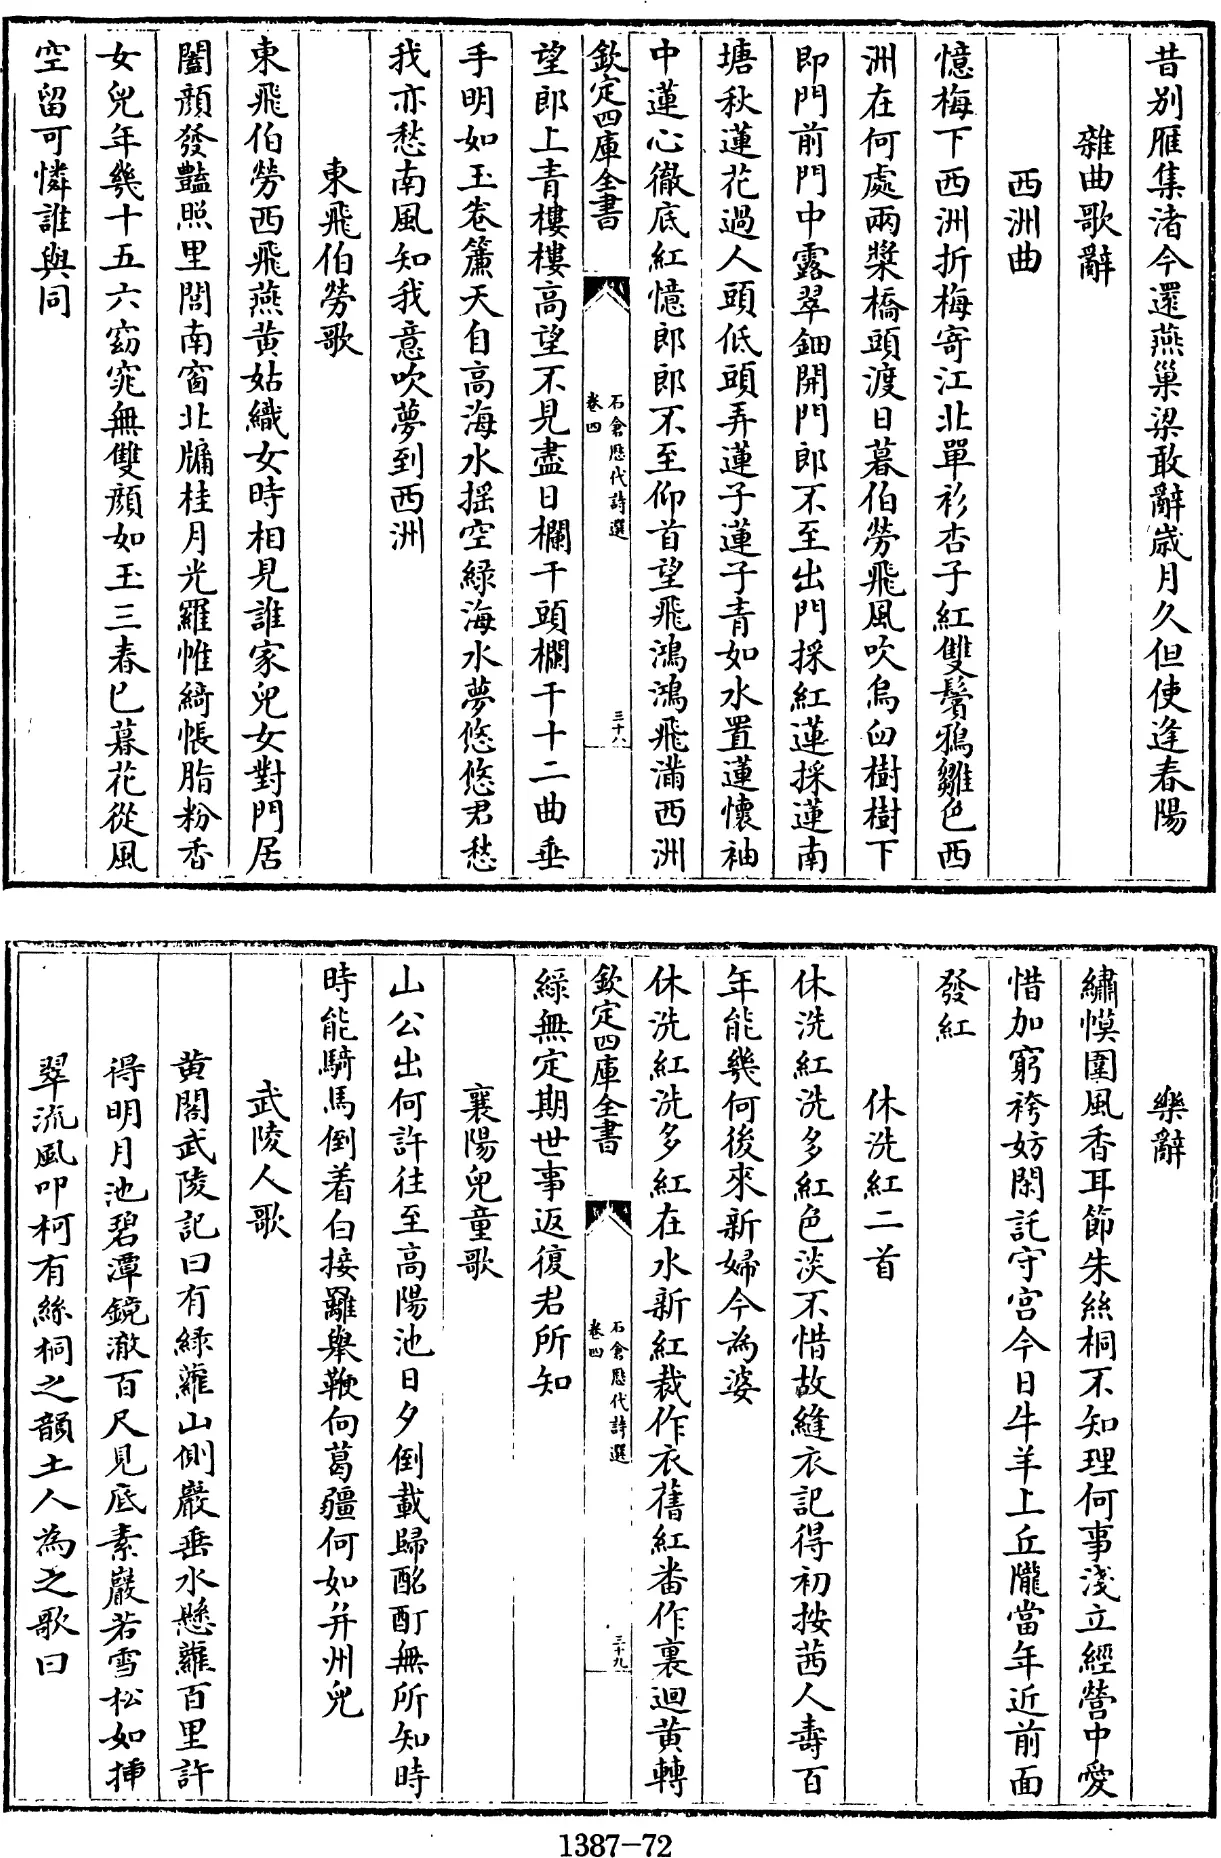 昔别雁集渚今還燕巢梁敢辭歳月久但使逢春陽
雜曲歌辭
西洲曲
憶梅下西洲折梅寄江北單衫杏子紅雙鬢鴉雛色西
洲在何處兩槳橋頭渡日暮伯勞飛風吹烏臼樹樹下
即門前門中露翠鈿開門郎不至出門採紅蓮採蓮南
塘秋蓮花過人頭低頭弄蓮子蓮子青如水置蓮懷袖
中蓮心徹底紅憶郎郎不至仰首望飛鴻鴻飛滿西洲
欽定四庫全書
石倉歷代詩選
卷四
三十八
望郎上青樓樓高望不見盡日欄干頭欄干十二曲垂
手明如玉卷簾天自高海水揺空緑海水夢悠悠君愁
我亦愁南風知我意吹夢到西洲
東飛伯勞歌
東飛伯勞西飛燕黄姑織女時相見誰家兒女對門居
闔顔發豔照里閭南窗北牖桂月光羅帷綺帳脂粉香
女兒年幾十五六窈窕無雙顔如玉三春已暮花從風
空留可憐誰與同
樂辭
繡幙圍風香耳節朱絲桐不知理何事淺立經營中愛
惜加窮袴妨閑託守宫今日牛羊上丘隴當年近前面
發紅
休洗紅二首
休洗紅洗多紅色淡不惜故縫衣記得初按茜人壽百
年能幾何後來新婦今為婆
休洗紅洗多紅在水新紅裁作衣舊紅番作裏迴黄轉
欽定四庫全書
石倉歷代詩選
卷四
三十九
緑無定期世事返復君所知
襄陽兒童歌
山公出何許往至高陽池日夕倒載歸酩酊無所知時
時能騎馬倒着白接䍦舉鞭向葛疆何如并州兒
武陵人歌
黄閣武陵記曰有緑蘿山側巖垂水懸蘿百里許
得明月池碧潭鏡澈百尺見底素巖若雪松如插
翠流風叩柯有絲桐之韻土人為之歌曰
1387-72